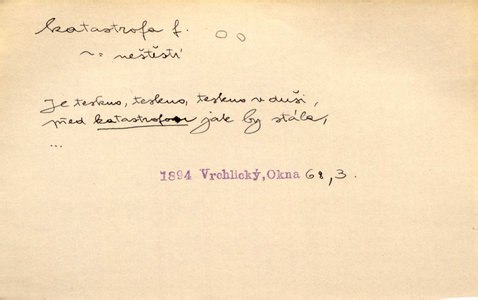 katastrofa f.
~ = neštěstí
Je teskno, teskno, teskno v duši,
před katastrofou jak by stála,
...
1894 Vrchlický, Okna 68, 3.